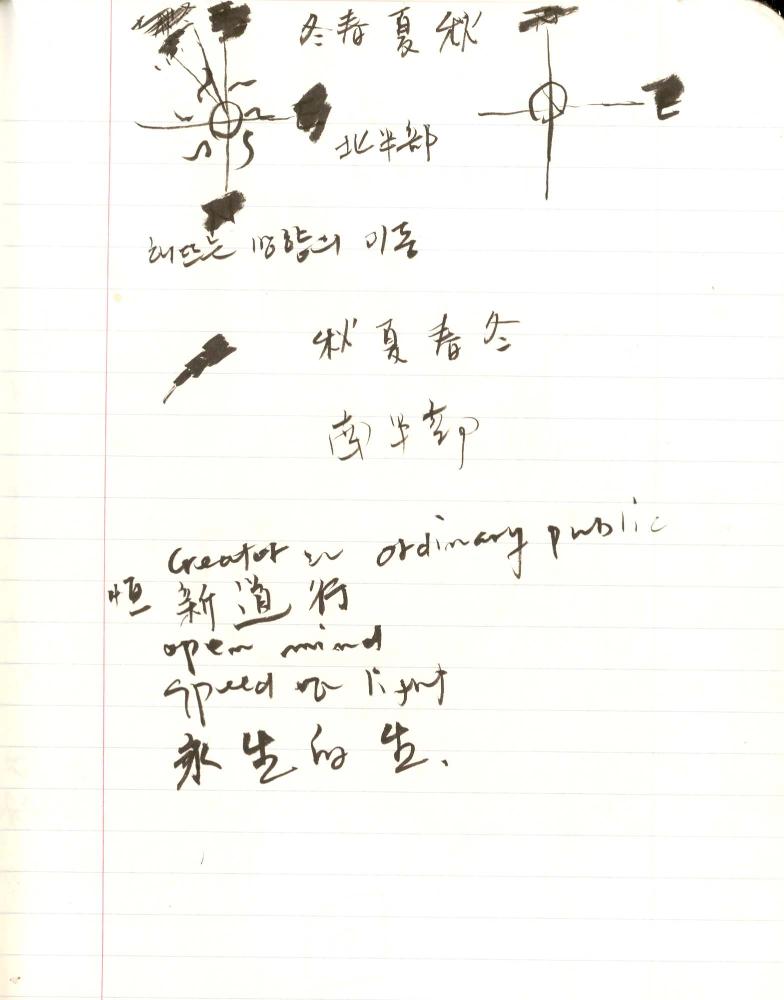 冬春夏秋
北半部
해뜨는 방향의 이동
秋夏春冬
南半部
Creator in ordinary public
恒 新道行
open mind
speed of light
永生的生.